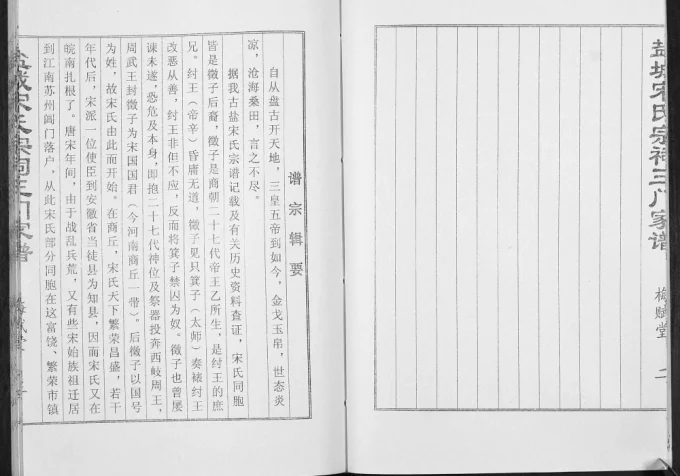 盐城宋氏宗祠三门家谱
梅赋堂
二
谱宗辑要
自从盘古开天地，三皇五帝到如今，金戈玉帛，世态炎
凉，沧海桑田，言之不尽。
据我古盐宋氏宗谱记载及有关历史资料查证，宋氏同胞
皆是微子后裔，微子是商朝二十七代帝王乙所生，是纣王的庶
兄。纣王（帝辛）昏庸无道，微子见只箕子（太师）奏裱纣王
改恶从善，纣王非但不应，反而将箕子禁囚为奴。微子也曾屡
谏未遂，恐危及本身，即抱二十七代神位及祭器投奔西岐周王，
周武王封微子为宋国国君（今河南商丘一带）。后微子以国号
为姓，故宋氏由此而开始。在商丘，宋氏天下繁荣昌盛，若干
年代后，宋派一位使臣到安徽省当徒县为知县，因而宋氏又在
皖南扎根了。唐宋年间，由于战乱兵荒，又有些宋始族祖迁居
到江南苏州阊门落户，从此宋氏部分同胞在这富饶、繁荣市镇
盐城宋氏宗祠三门家谱
梅赋堂